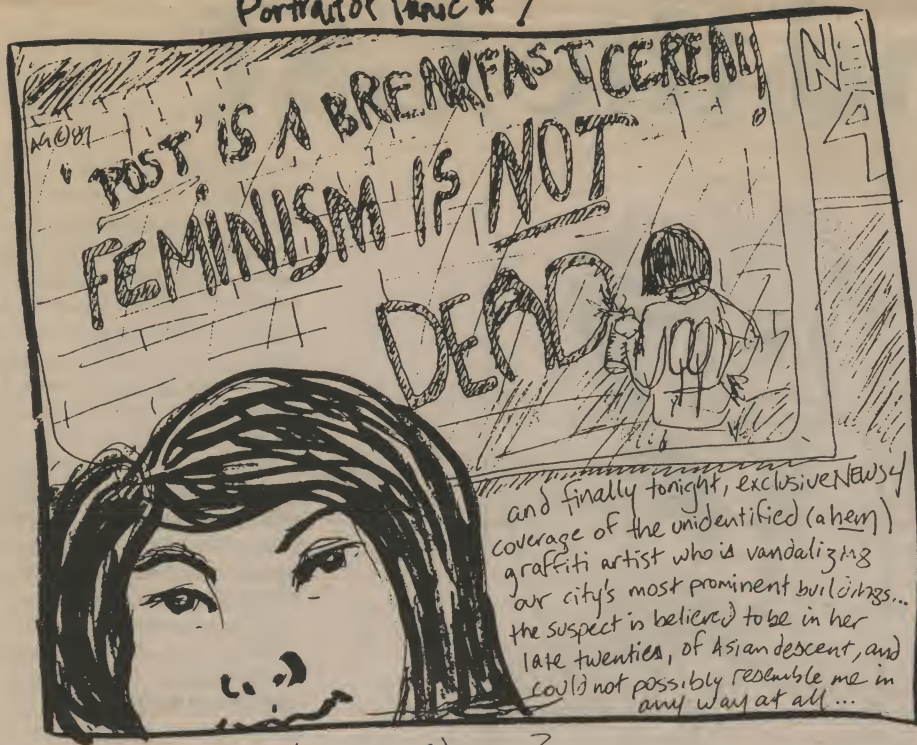 Portrait of Panic # 7
'POST' IS A BREAKFAST CEREAL!
FEMINISM IS NOT
DEAD
99
NE
4
and finally tonight, exclusive NEWS 4
coverage of the unidentified (ahem)
graffiti artist who is vandalizing
our city's most prominent buildings...
the suspect is believed to be in her
late twenties, of Asian descent, and
could not possibly resemble me in
any way at all...